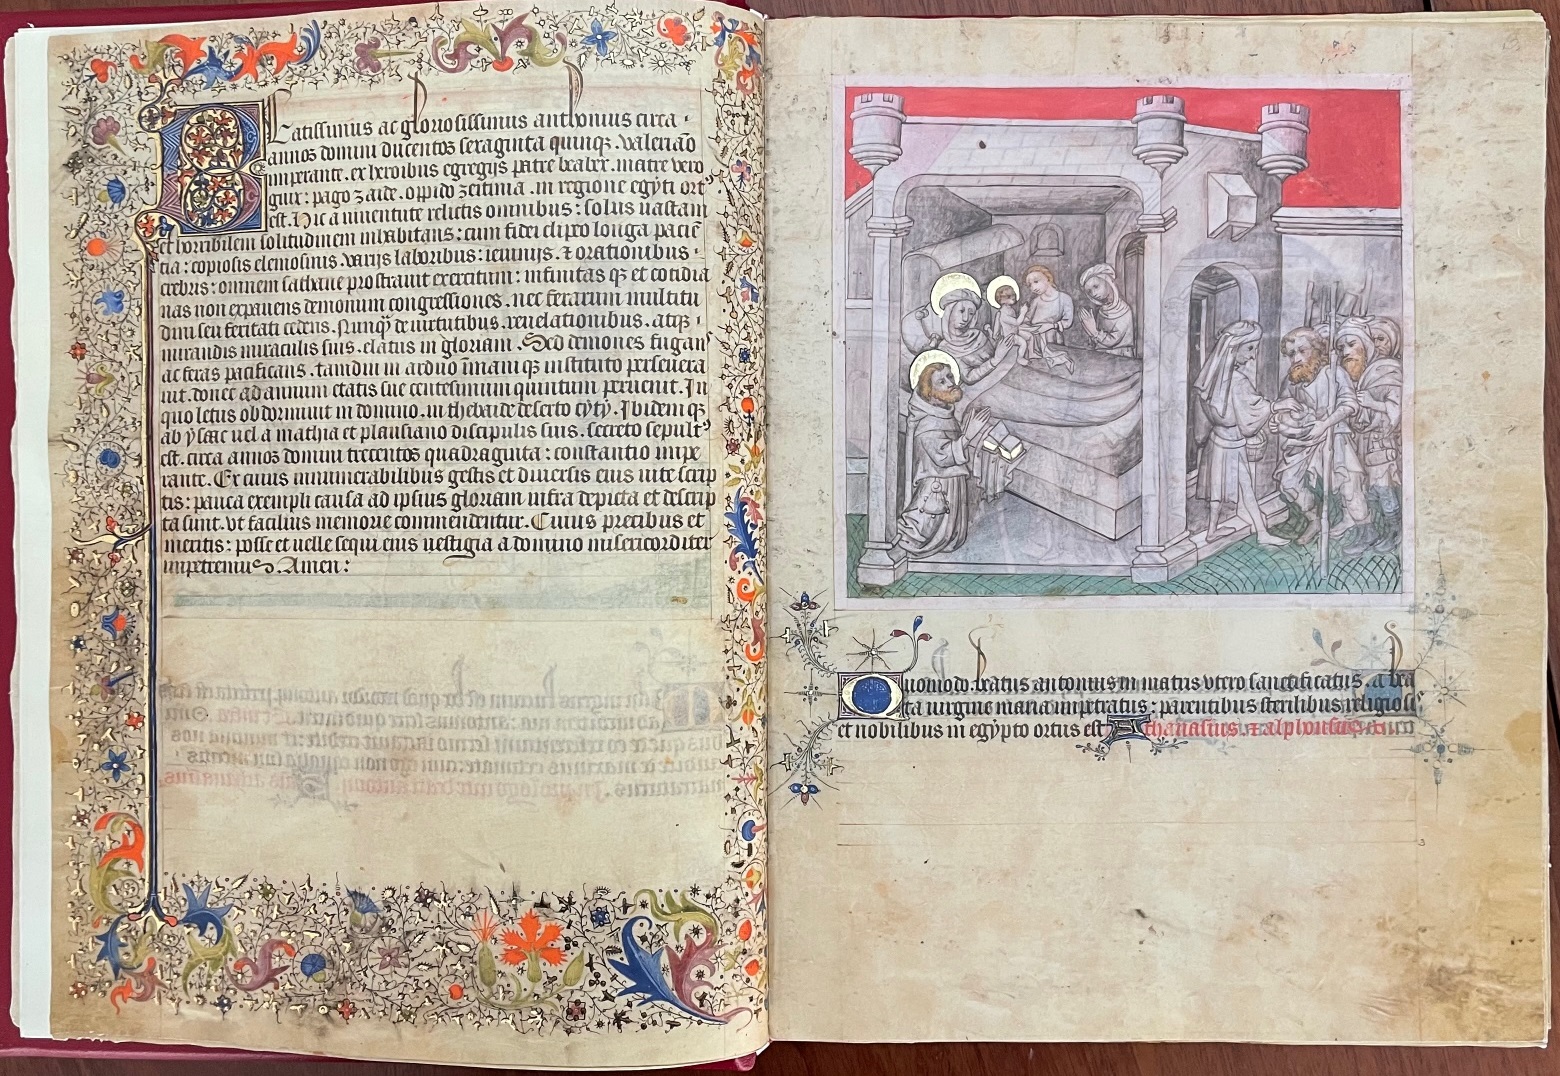 Beatissimus ac gloriosissimus anthonius circa
annos domini ducentos sexaginta quinqȝ. valeriāo
imperante. ex heroibus egregijs patre beaber. matre vero
guir: pago zaide. oppido zeitinia. in regione egypti ort'
est. Hic a iuuentute relictis omnibus: solus uastam
et horribilem solitudinem inhabitans: cum fidei clipeo longa paciē
tia: copiosis elemosinis. varijs laboribus: ieiunijs. et orationibus.
crebris: omnem sathane prostrauit exercitum: infinitas qȝ et cotidia
nas non expauens demonum congressiones. nec ferarum multitu
dini seu feritati cedens. Nunqȝ de uirtutibus. reuelationibus. atqȝ
mirandis miraculis suis. elatus in gloriam. Sed demones fugan'
ac feras pacificans. tamdiu in arduo īmani qȝ instituto perseuera
uit. donec ad annum etatis sue centesimum quintum peruenit. In
quo letus obdormiuit in domino. in thebaide deserto Ibidemqȝ
ab ysaac uel a mathia et plausiano discipulis suis. secreto sepult'
est. circa annos domini trecentos quadraginta: constantio impe
rante. Ex cuius innumerabilibus gestis et diuersis eius uite scrip
tis: pauca exempli causa ad ipsius gloriam infra depicta et descrip
ta sunt. vt facilius memorie commendentur. Cuius precibus et
meritis: posse et uelle sequi eius uestigia a domino misericorditer
impetremus. Amen:
Quomodo. beatus antonius in matris vtero sanctificatus. a bea
ta uirgine maria impetratus: parentibus sterilibus religiosis
et nobilibus in egypto ortus est Athanasius. et alphonsus
3